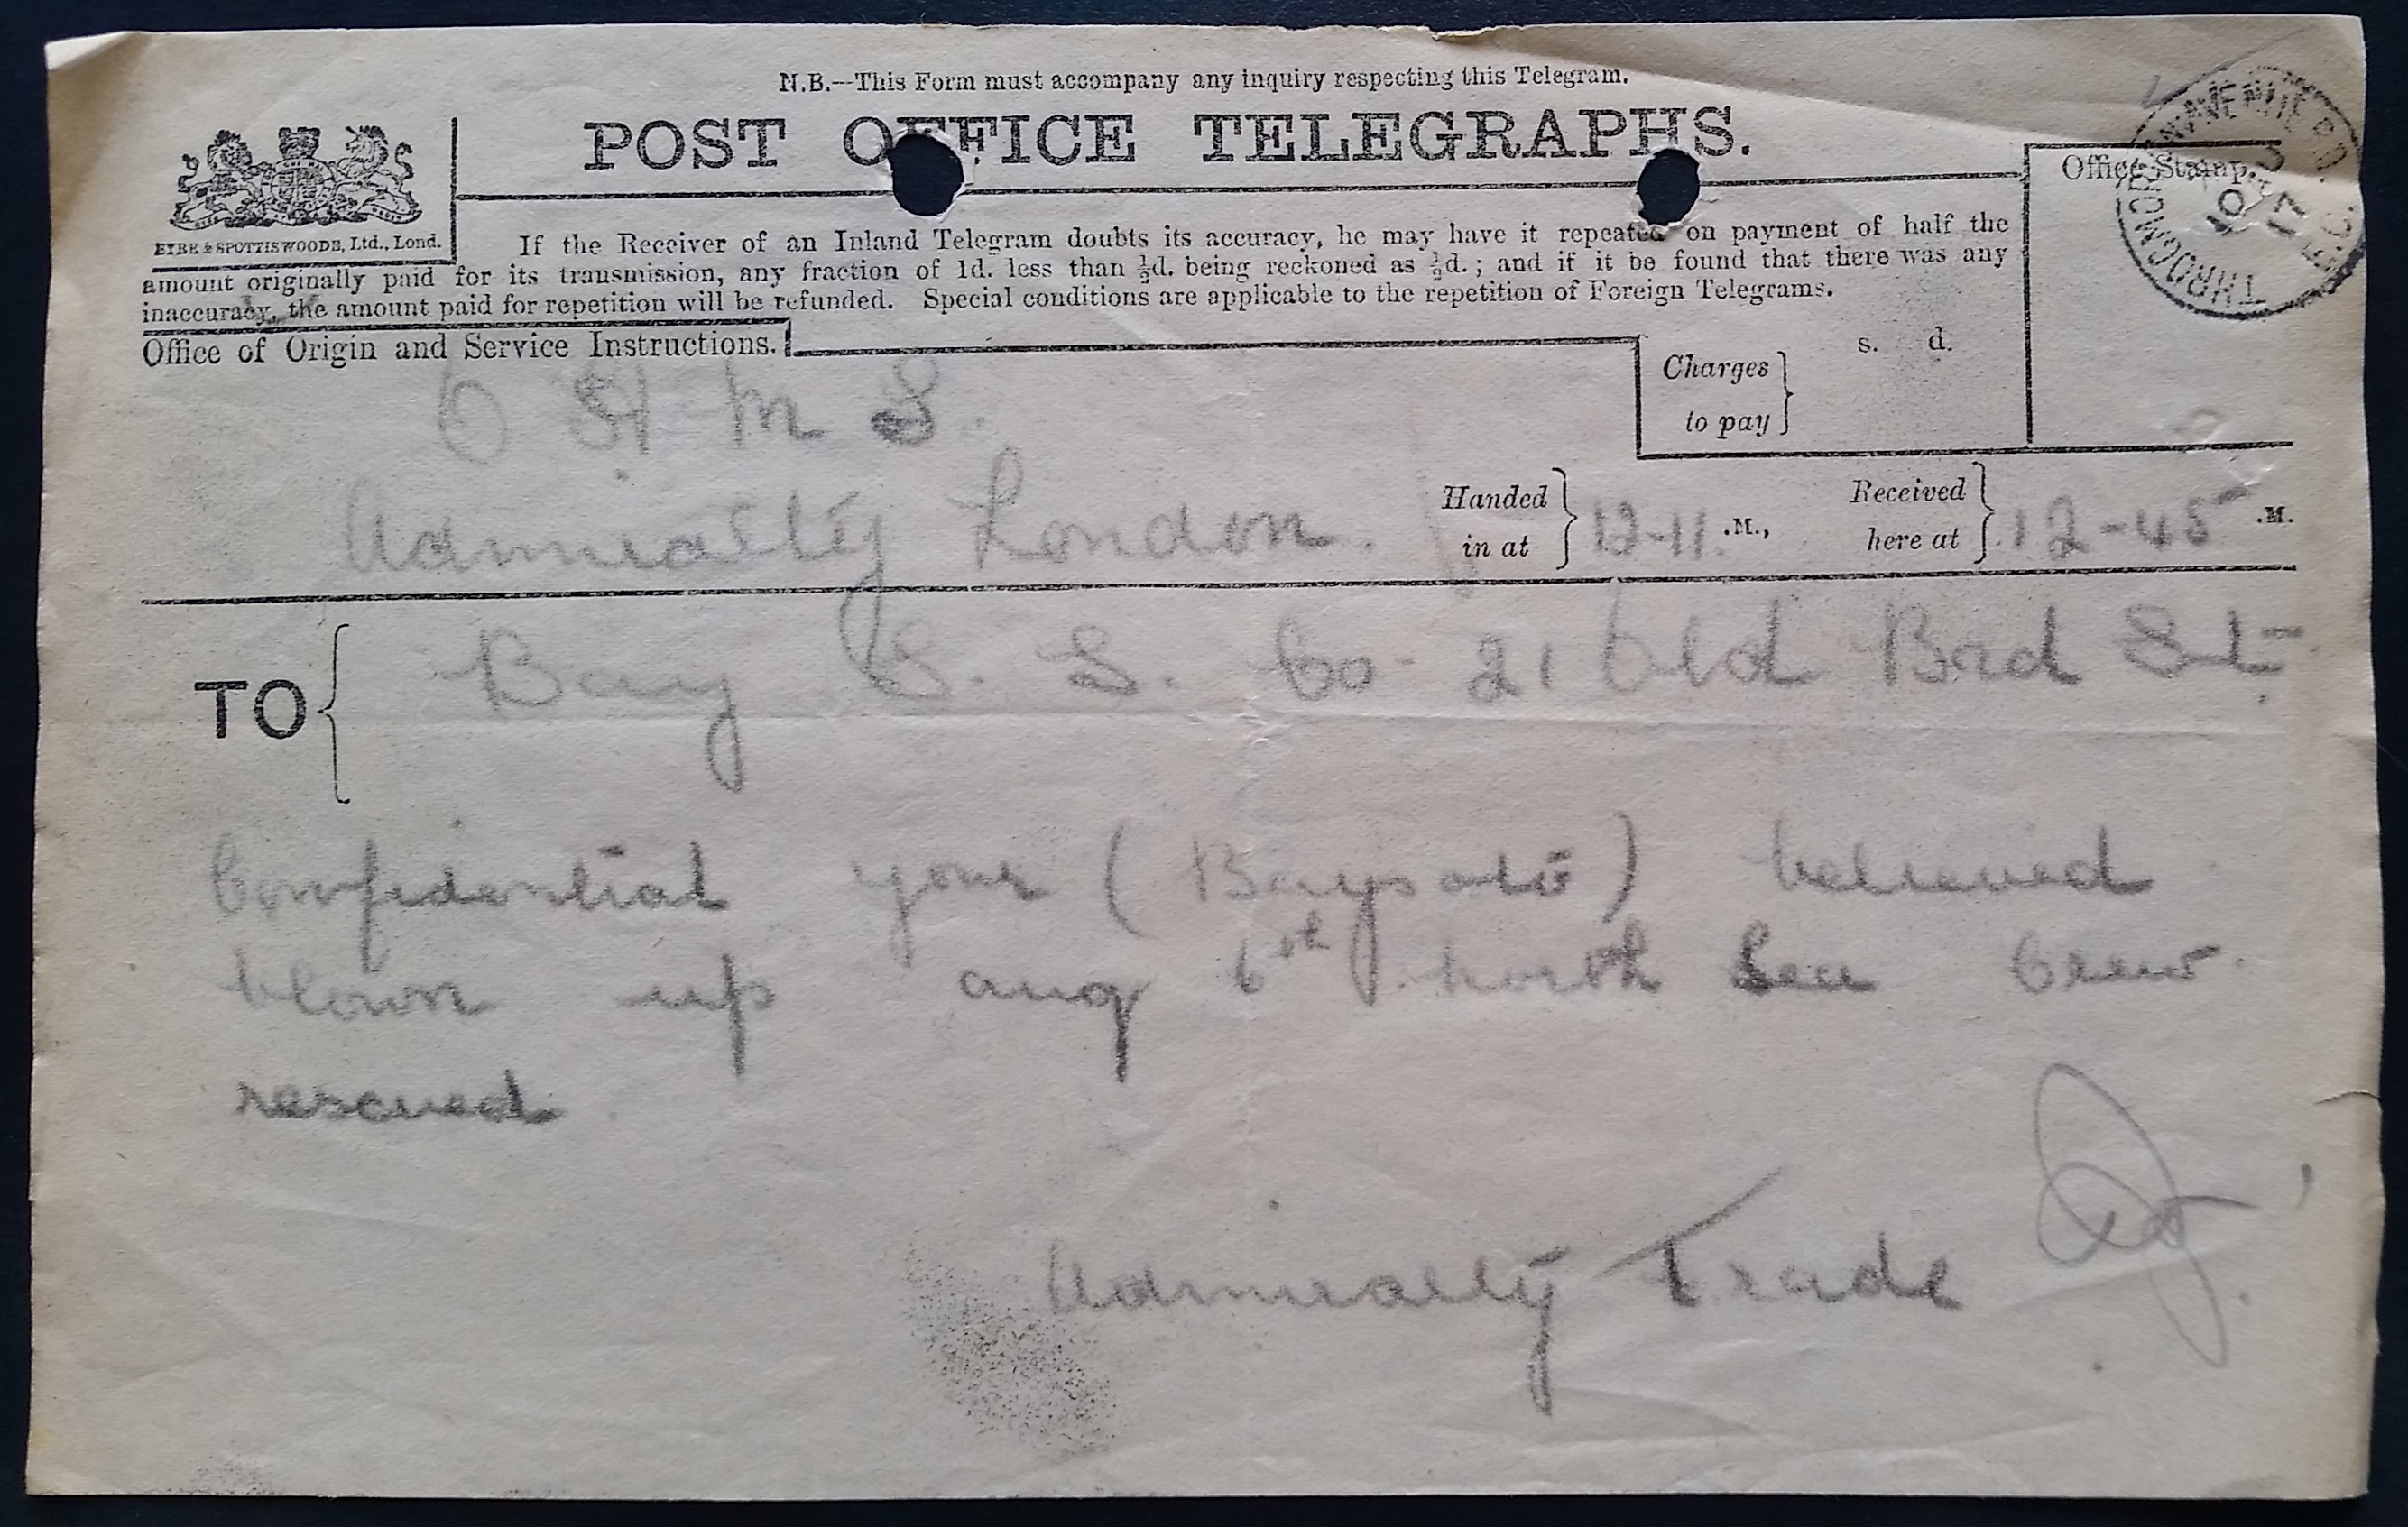 N.B.--This Form must accompany any inquiry respecting this Telegram.
POST OFFICE TELEGRAPHS.
EYRE & SPOTTISWOODE, Ltd., Lond.
If the Receiver of an Inland Telegram doubts its accuracy, he may have it repeated on payment of half the
amount originally paid for its transmission, any fraction of 1d. less than ½d. being reckoned as ½d.; and if it be found that there was any
inaccuracy, the amount paid for repetition will be refunded. Special conditions are applicable to the repetition of Foreign Telegrams.
Office of Origin and Service Instructions.
Charges to pay
s. d.
Office Stamp.
THROGMORTON AVENUE B.O. E.C.
10 AU 17
O H M S.
Admiralty London.
Handed in at 12-11 .M.,
Received here at 12-45 .M.
TO Bay S. S. Co. 21 Old Brd St.
Confidential your (Baysoto) believed
blown up aug 6th north Sea Crew
rescued
Admiralty Trade